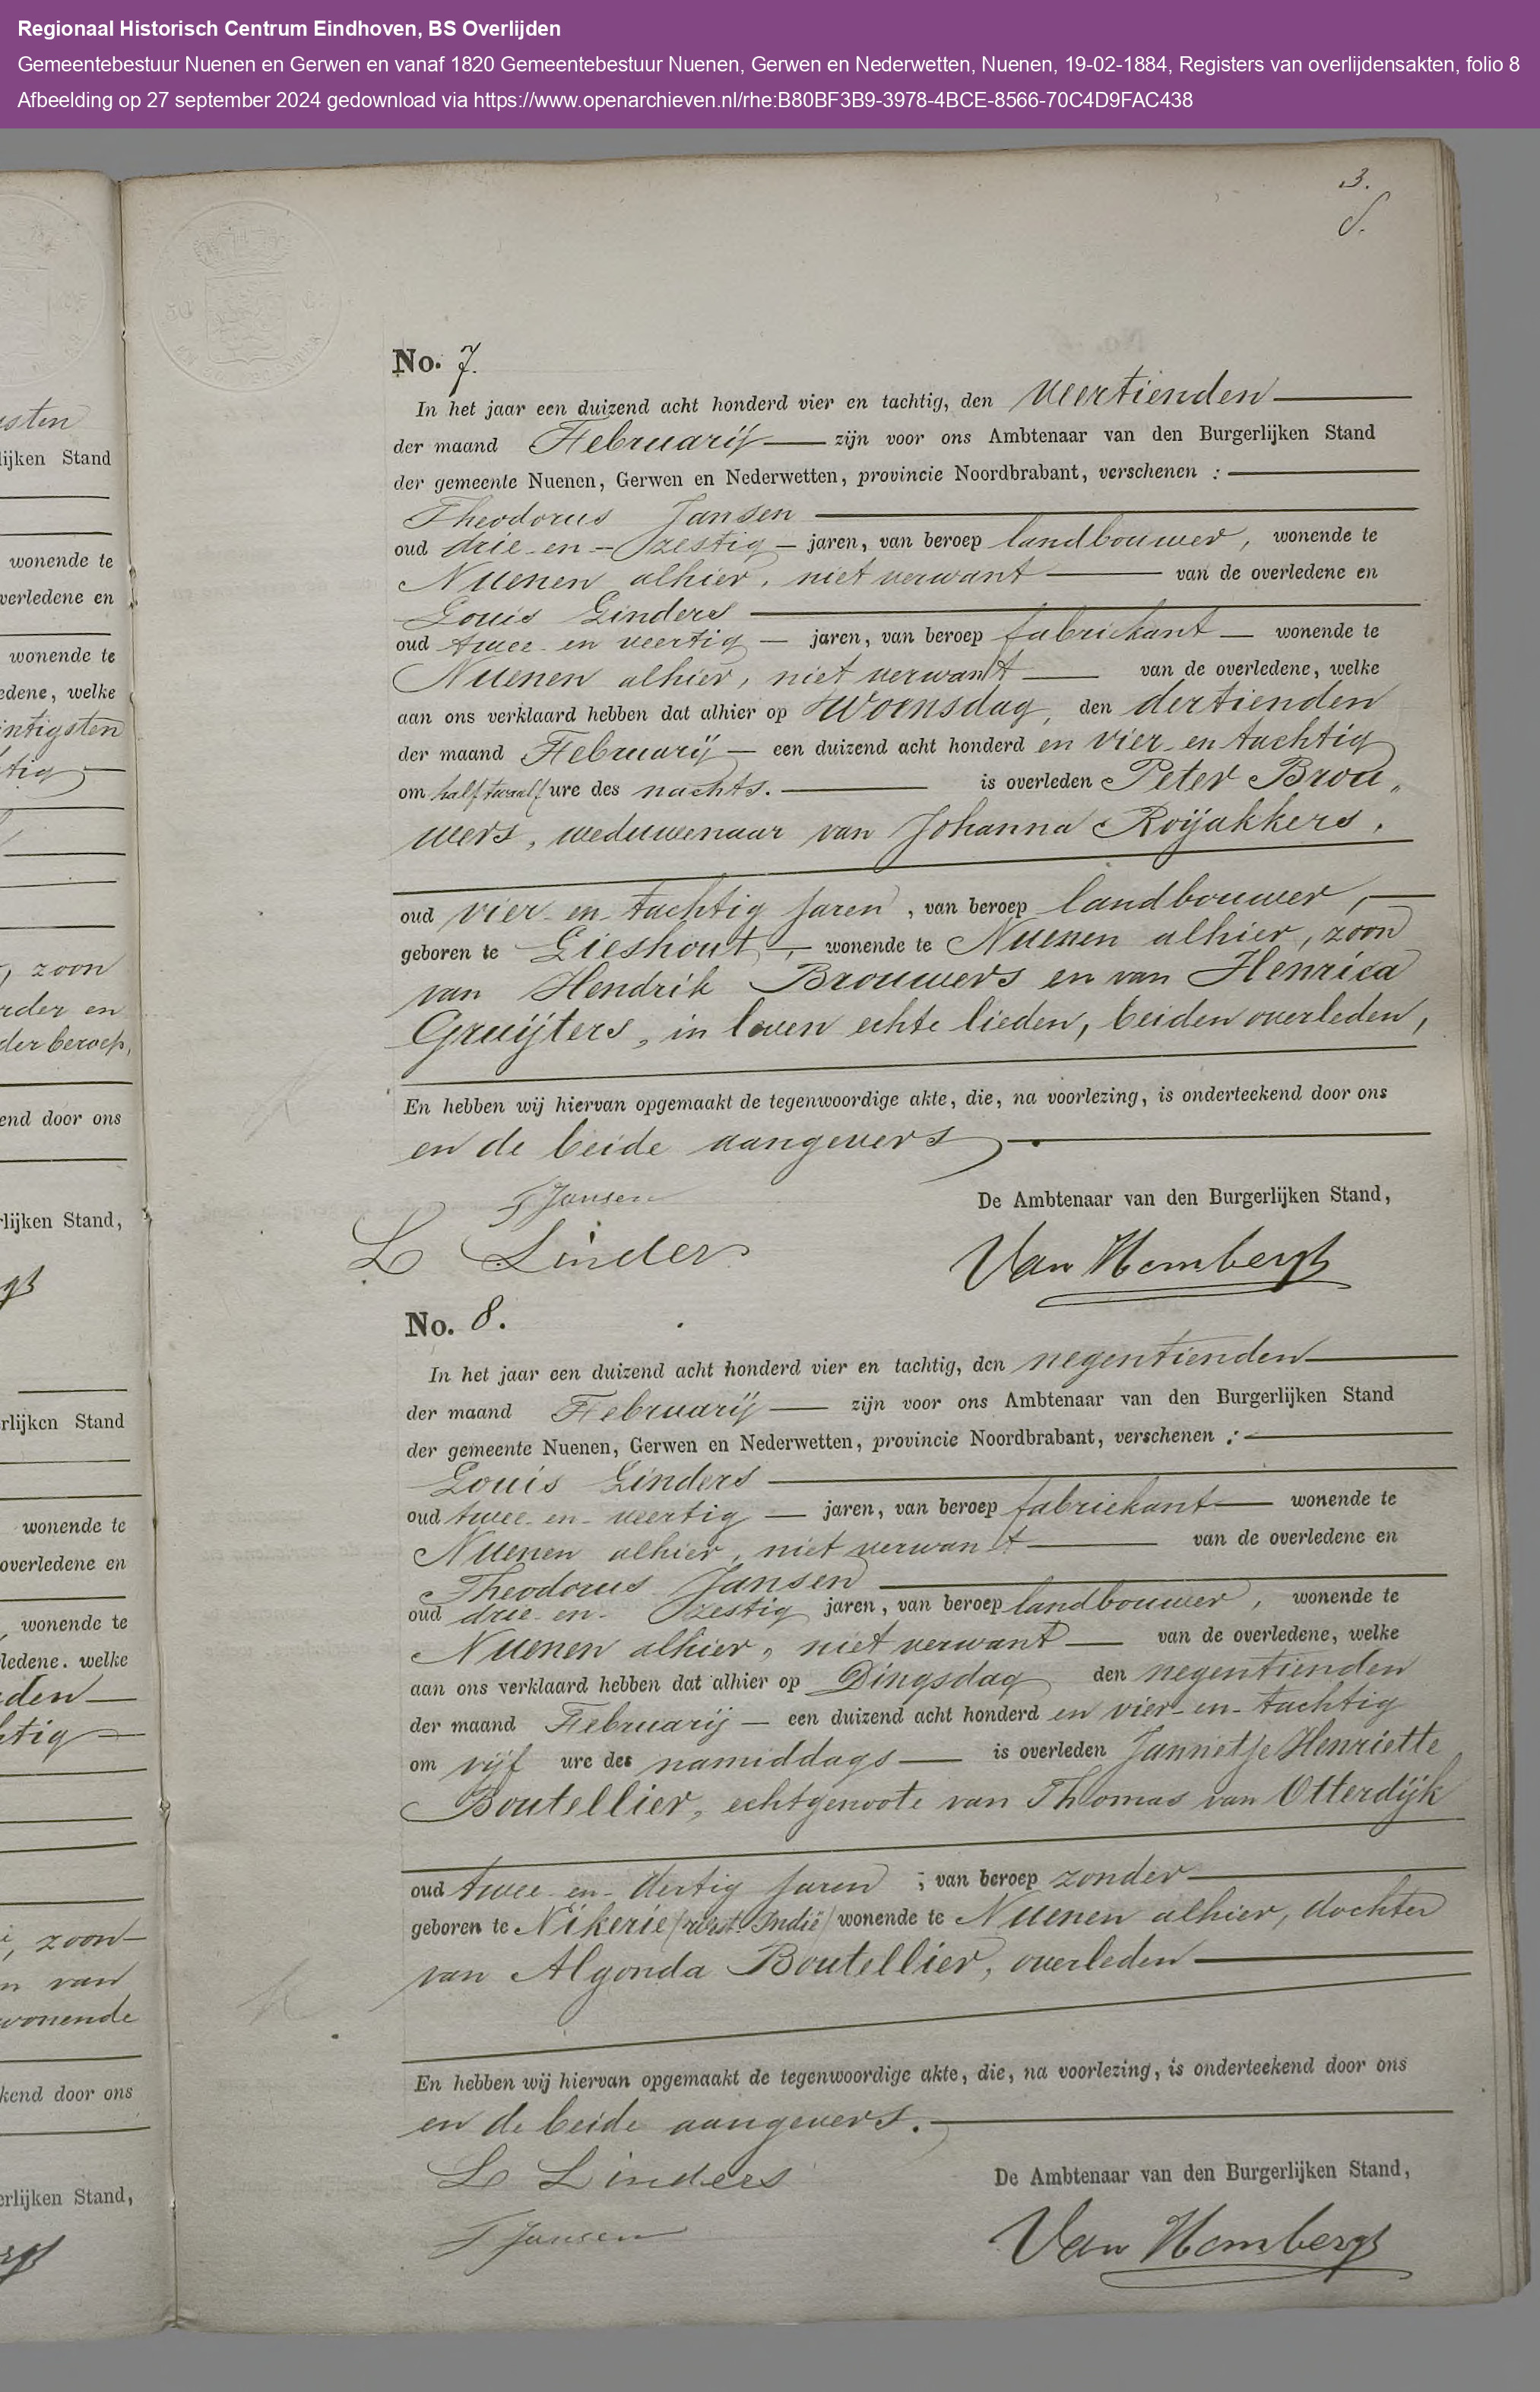 Regionaal Historisch Centrum Eindhoven, BS Overlijden
Gemeentebestuur Nuenen en Gerwen en vanaf 1820 Gemeentebestuur Nuenen, Gerwen en Nederwetten, Nuenen, 19-02-1884, Registers van overlijdensakten, folio 8
Afbeelding op 27 september 2024 gedownload via https://www.openarchieven.nl/rhe:B80BF3B9-3978-4BCE-8566-70C4D9FAC438
3.
No. 7.
In het jaar een duizend acht honderd vier en tachtig, den veertienden
der maand Februarij zijn voor ons Ambtenaar van den Burgerlijken Stand
der gemeente Nuenen, Gerwen en Nederwetten, provincie Noordbrabant, verschenen :
Theodorus Jansen
oud drie-en-zestig jaren, van beroep landbouwer, wonende te
Nuenen alhier, niet verwant van de overledene en
Louis Linders
oud twee-en veertig jaren, van beroep fabriekant wonende te
Nuenen alhier, niet verwant van de overledene, welke
aan ons verklaard hebben dat alhier op Woensdag, den dertienden
der maand Februarij een duizend acht honderd en vier-en tachtig
om half twaalf ure des nachts. is overleden Peter Brou„
wers, weduwenaar van Johanna Roijakkers,
oud vier-en-tachtig jaren, van beroep landbouwer,
geboren te Lieshout, wonende te Nuenen alhier, zoon
van Hendrik Brouwers en van Henrica
Gruijters, in leven echte lieden, beiden overleden,
En hebben wij hiervan opgemaakt de tegenwoordige akte, die, na voorlezing, is onderteekend door ons
en de beide aangevers
T Jansen
De Ambtenaar van den Burgerlijken Stand,
L Linders
Van Hombergh
No. 8.
In het jaar een duizend acht honderd vier en tachtig, den negentienden
der maand Februarij zijn voor ons Ambtenaar van den Burgerlijken Stand
der gemeente Nuenen, Gerwen en Nederwetten, provincie Noordbrabant, verschenen :
Louis Linders
oud twee-en-veertig jaren, van beroep fabriekant wonende te
Nuenen alhier, niet verwant van de overledene en
Theodorus Jansen
oud drie-en-zestig jaren, van beroep landbouwer, wonende te
Nuenen alhier, niet verwant van de overledene, welke
aan ons verklaard hebben dat alhier op Dingsdag den negentienden
der maand Februarij een duizend acht honderd en vier-en-tachtig
om vijf ure des namiddags is overleden Jannetje Henriette
Boutellier, echtgenoote van Thomas van Otterdijk
oud twee-en-dertig jaren, van beroep zonder
geboren te Nikerie (west-Indië) wonende te Nuenen alhier, dochter
van Algonda Boutellier, overleden
En hebben wij hiervan opgemaakt de tegenwoordige akte, die, na voorlezing, is onderteekend door ons
en de beide aangevers.
L Linders
De Ambtenaar van den Burgerlijken Stand,
T Jansen
Van Hombergh